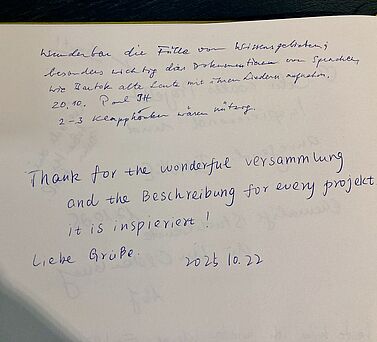 Wunderbar die Fülle von Wissensgebieten;
besonders wichtig das Dokumentieren von Sprachen,
wie Bartok alte Leute mit ihren Liedern aufnahm.
20.10. Paul
2-3 Klapphocker wären nützig.
Thank for the wonderful versammlung
and the Beschreibung for every projekt
it is inspieriert!
Liebe Grüße. 2025 10.22